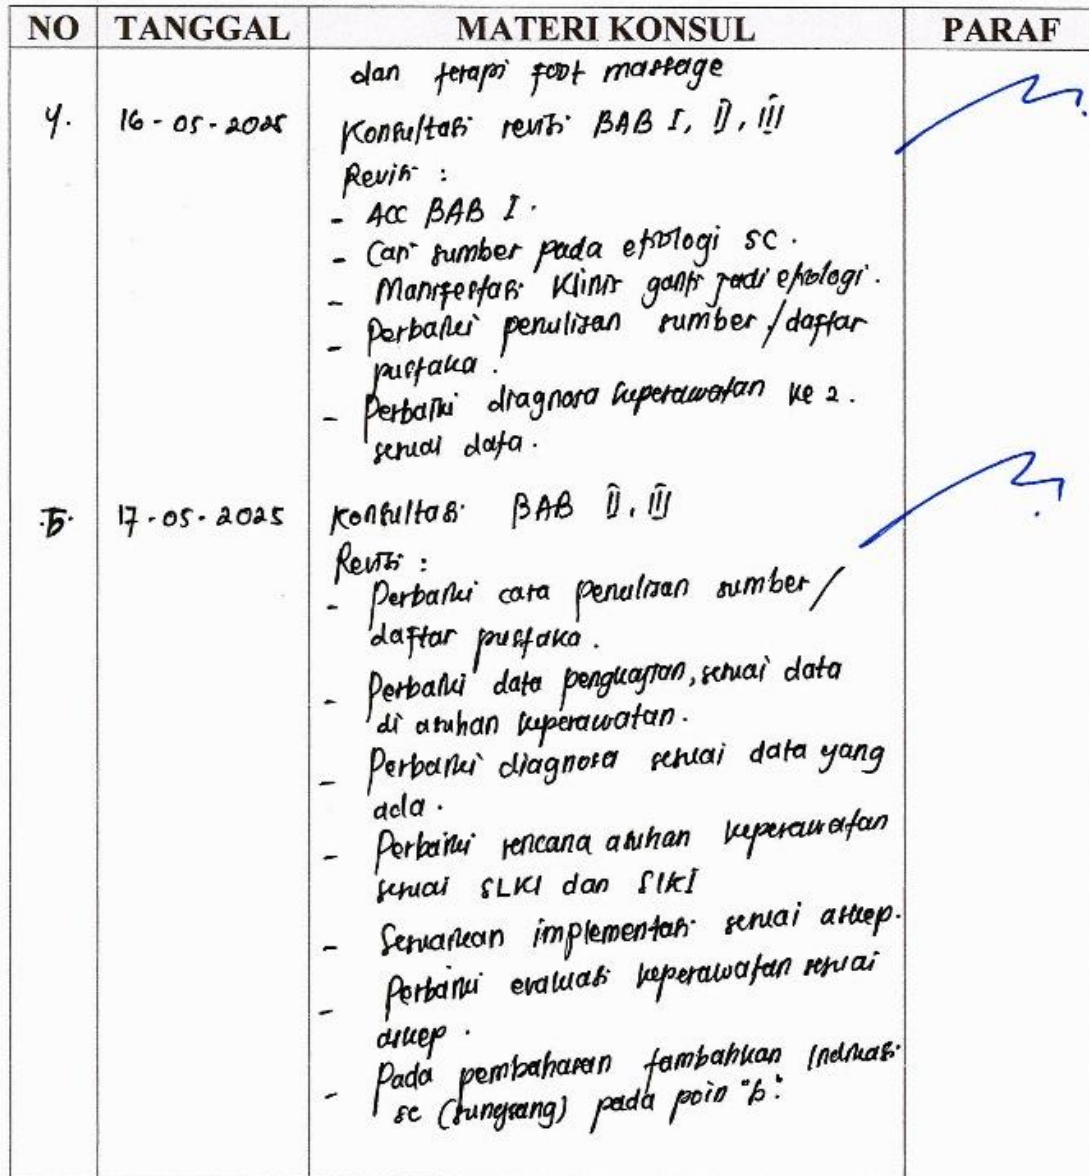 NO TANGGAL MATERI KONSUL PARAF
dan terapi foot massage
4. 16-05-2025 Konsultasi revisi BAB I, II, III
Revisi :
- ACC BAB I.
- Cari sumber pada etiologi SC.
- Manifestasi Klinis ganti jadi etiologi.
- Perbaiki penulisan sumber / daftar
pustaka.
- Perbaiki diagnosa keperawatan ke 2.
sesuai data.
5. 17-05-2025 Konsultasi BAB II, III
Revisi :
- Perbaiki cara penulisan sumber /
daftar pustaka.
- Perbaiki data pengkajian, sesuai data
di asuhan keperawatan.
- Perbaiki diagnosa sesuai data yang
ada.
- Perbaiki rencana asuhan keperawatan
sesuai SLKI dan SIKI
- Sesuaikan implementasi sesuai askep.
- Perbaiki evaluasi keperawatan sesuai
askep.
- Pada pembahasan tambahkan indikasi
sc (sungsang) pada poin "b".